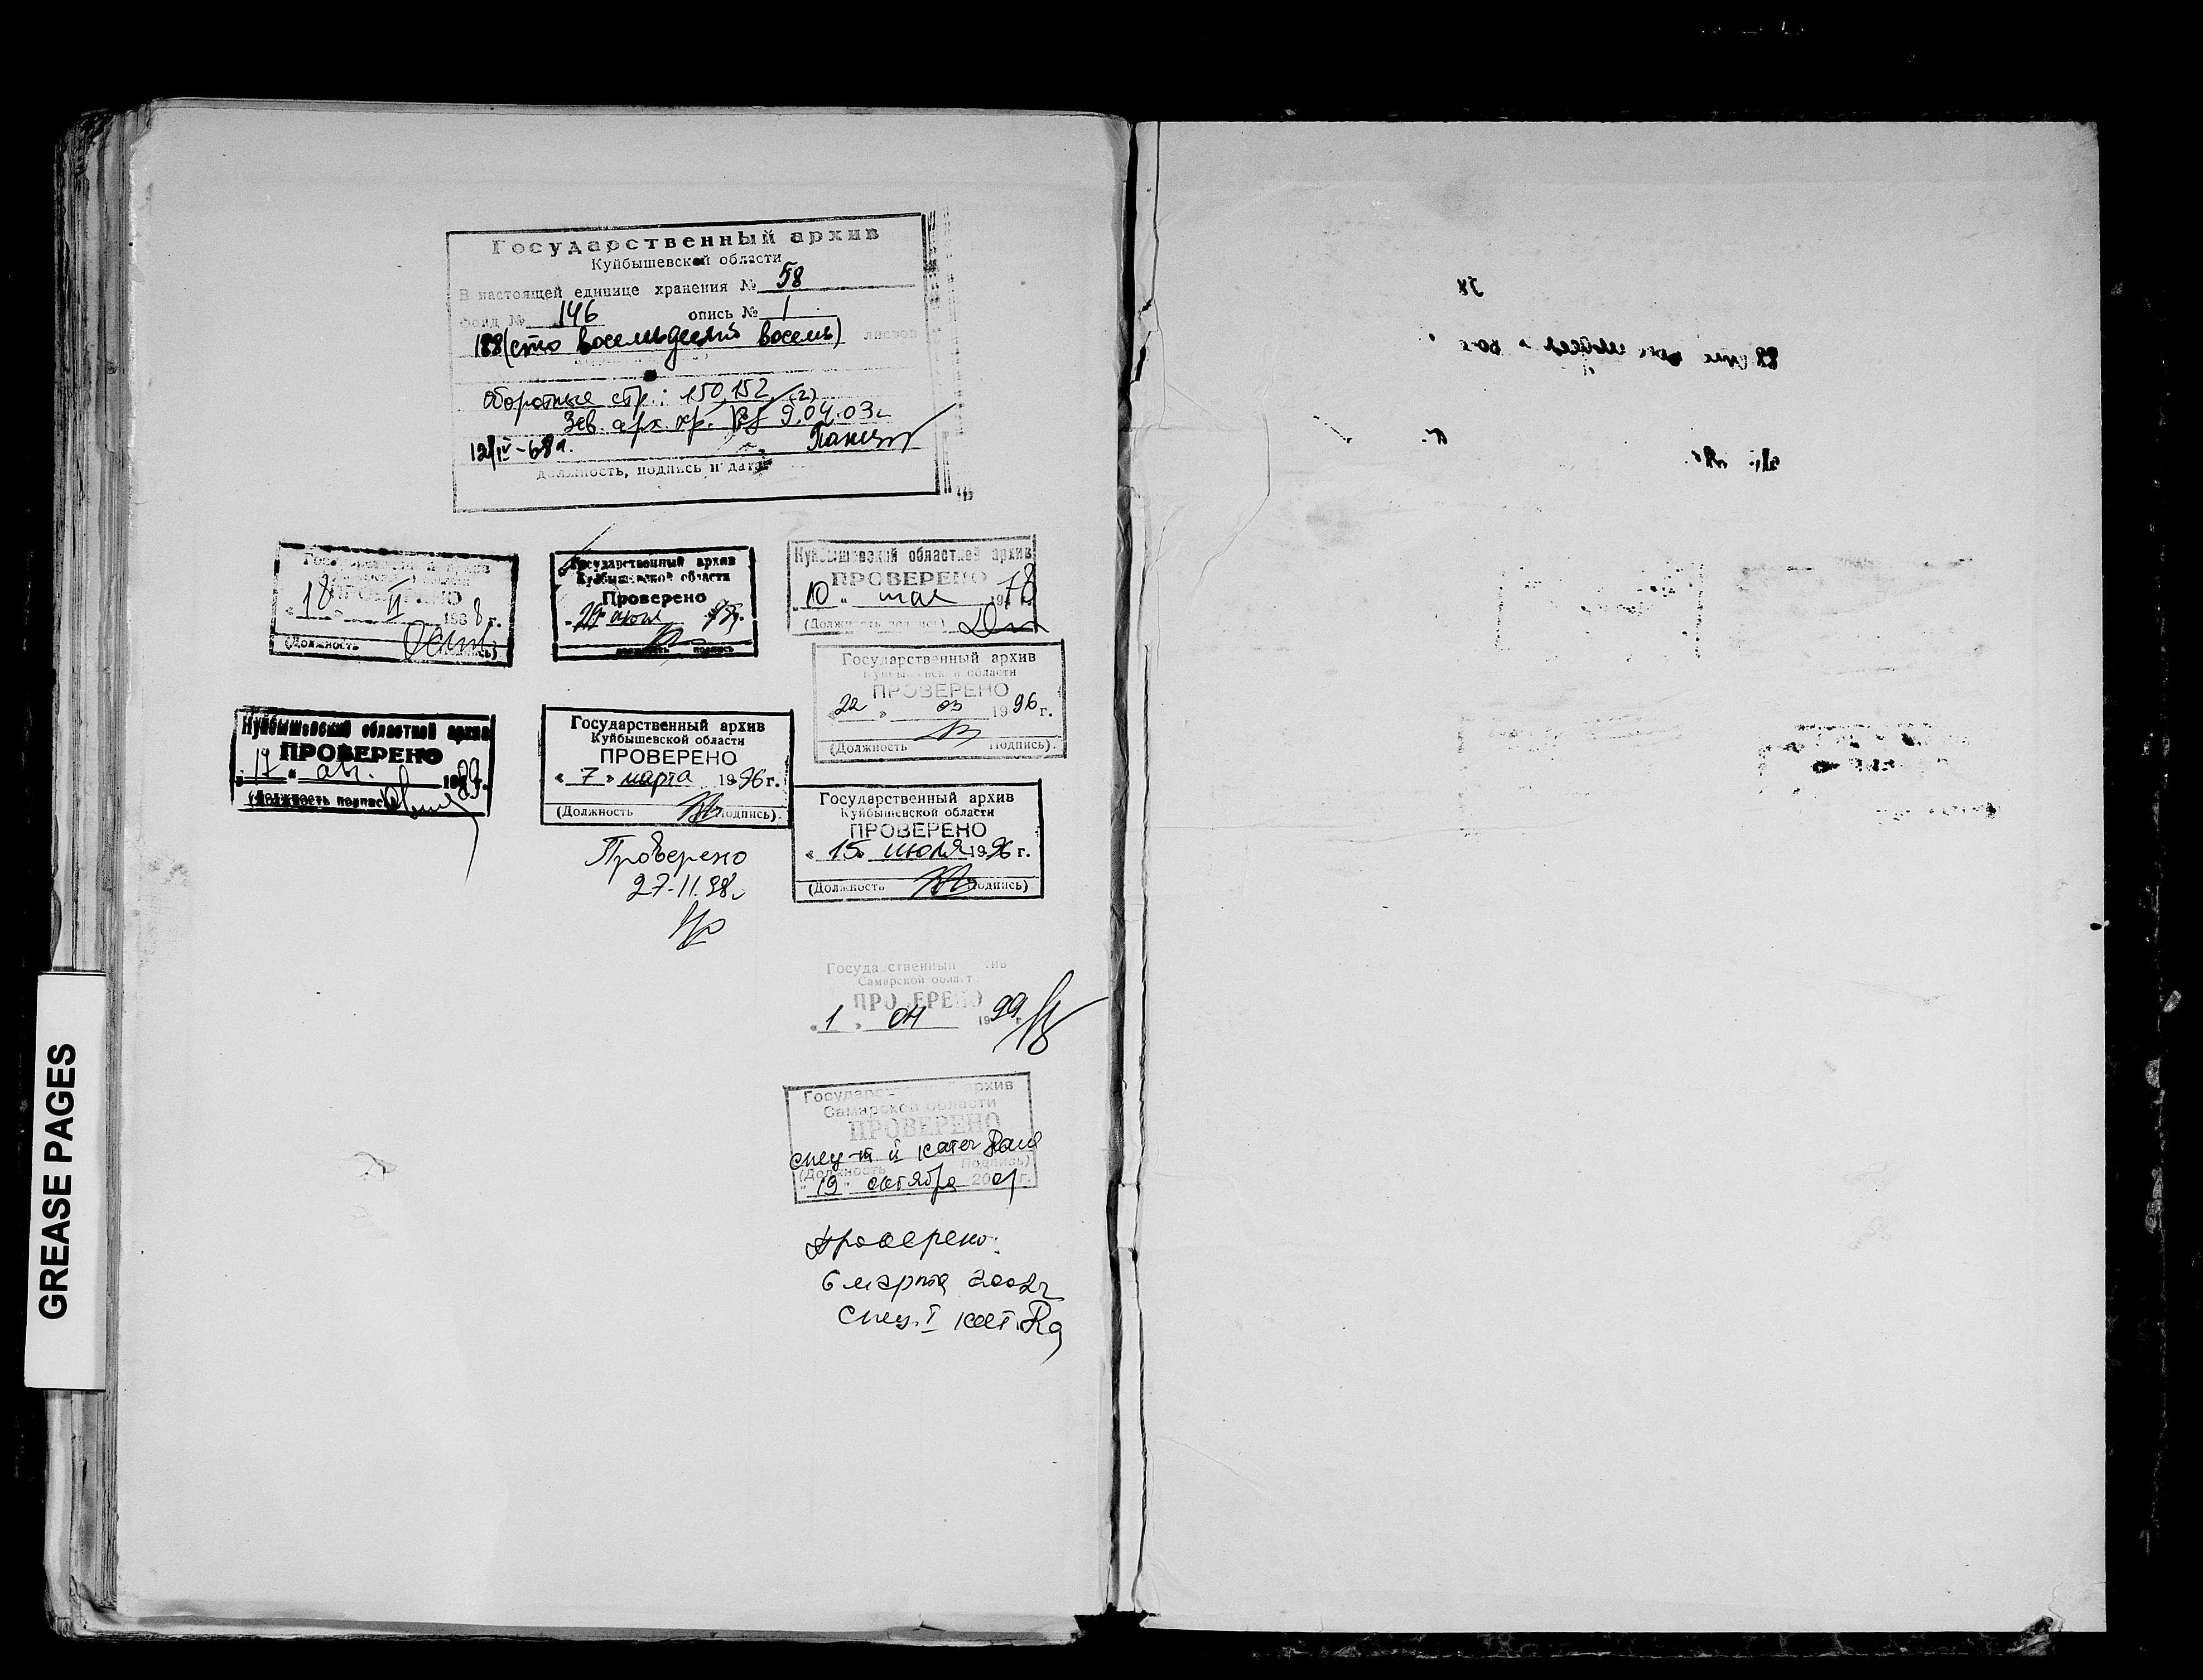 Государственный архив
Куйбышевской области
В настоящей единице хранения № 58
фонд № 146 опись № 1
188 (сто восемьдесят восемь) листов
Оборотные стр.: 150, 152 (2)
Зав. арх. хр. 9.04.03г
12/IV-68г.
должность, подпись и дата
Государственный архив
ПРОВЕРЕНО
"18" II 1988 г.
(Должность подпись)
Государственный архив
Куйбышевской области
Проверено
должность подпись
Куйбышевский областной архив
ПРОВЕРЕНО
"10" мая 1978
(Должность подпись)
Государственный архив
Куйбышевской области
ПРОВЕРЕНО
«22» 03 1996 г.
(Должность Подпись).
Куйбышевский областной архив
ПРОВЕРЕНО
(Должность подпись)
Государственный архив
Куйбышевской области
ПРОВЕРЕНО
«7» марта 1996 г.
(Должность Подпись).
Государственный архив
Куйбышевской области
ПРОВЕРЕНО
«15» июля 1996 г.
(Должность Подпись)
Проверено
27.11.98г
Государственный архив
Самарской област
ПРОВЕРЕНО
«1» 04 1999 г.
Государственный архив
Самарской области
ПРОВЕРЕНО
спец-т II катег
(Должность Подпись)
"19" октября 2001 г.
Проверено
6 марта 2002г
Спец. I кат.
GREASE PAGES